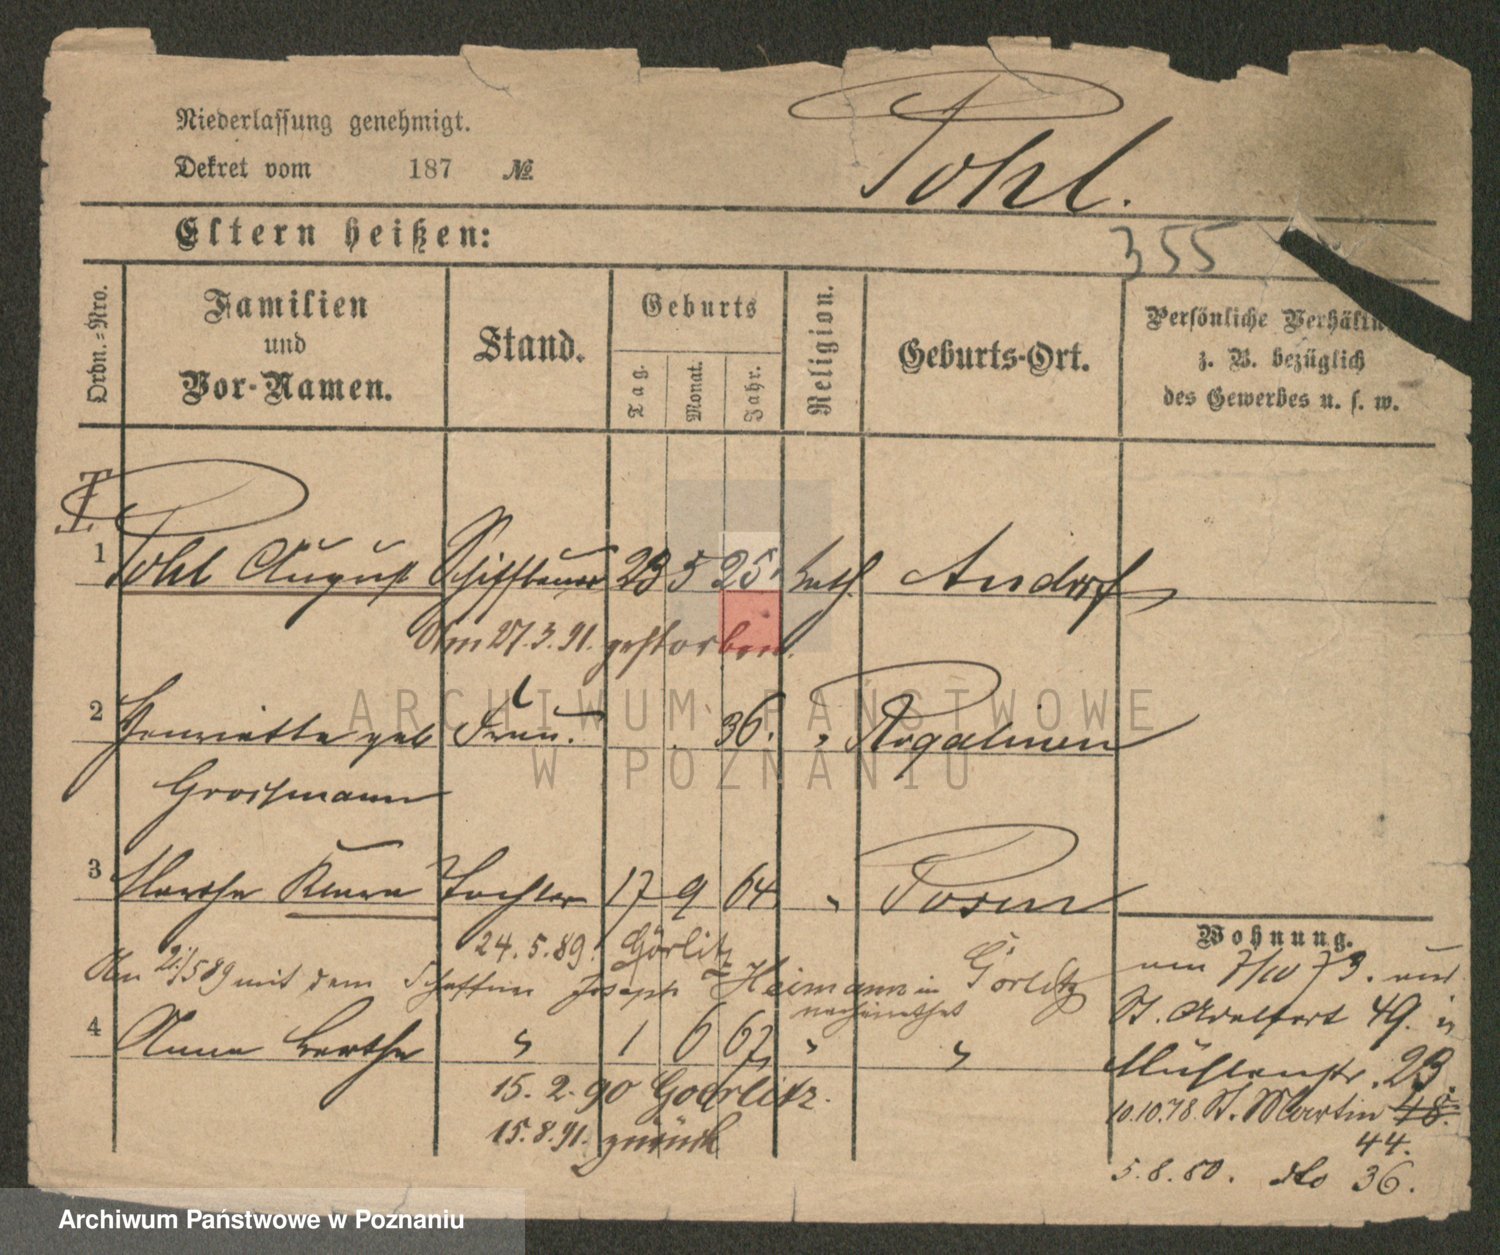 Niederlassung genehmigt.
Dekret vom 187 №
Pohl.
Eltern heißen:
355
Ordn.-Nro.
Familien
und
Vor-Namen.
Stand.
Geburts
Tag.
Monat.
Jahr.
Religion.
Geburts-Ort.
Persönliche Verhältn
z. B. bezüglich
des Gewerbes u. s. w.
1 Pohl August Schiffbauer 23 5 25 kath. Andorf
Am 27.3.91. gestorben.
2 Henriette geb Frau. 36. " Rogalinen
Grossmann
3 Martha Klara Tochter 17 9 64 " Posen
24.5.89. Görlitz
Am 21/5 89 mit dem Schaffner Joseph Heimann in Görlitz
verheirathet
4 Anna Bertha " 1 6 67 " "
15.2.90 Goerlitz.
15.8.91. zurück
Wohnung.
am 7/10 73. auf
St. Adalbert 49.
Mühlenstr. 23.
10.10.78. St. Martin 48.
44.
5.8.80. dto 36.
ARCHIWUM PAŃSTWOWE
W POZNANIU
Archiwum Państwowe w Poznaniu